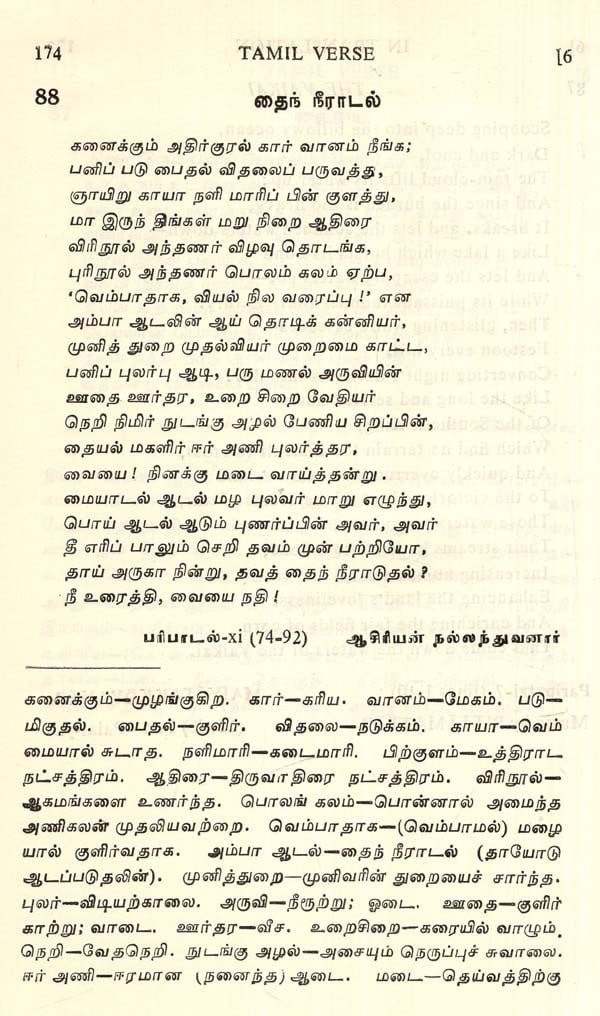 174 TAMIL VERSE [6
88 தைந் நீராடல்
கனைக்கும் அதிர்குரல் கார் வானம் நீங்க;
பனிப் படு பைதல் விதலைப் பருவத்து,
ஞாயிறு காயா நளி மாரிப் பின் குளத்து,
மா இருந் திங்கள் மறு நிறை ஆதிரை
விரிநூல் அந்தணர் விழவு தொடங்க,
புரிநூல் அந்தணர் பொலம் கலம் ஏற்ப,
‘வெம்பாதாக, வியல் நில வரைப்பு !’ என
அம்பா ஆடலின் ஆய் தொடிக் கன்னியர்,
முனித் துறை முதல்வியர் முறைமை காட்ட,
பனிப் புலர்பு ஆடி, பரு மணல் அருவியின்
ஊதை ஊர்தர, உறை சிறை வேதியர்
நெறி நிமிர் நுடங்கு அழல் பேணிய சிறப்பின்,
தையல் மகளிர் ஈர் அணி புலர்த்தர,
வையை ! நினக்கு மடை வாய்த்தன்று.
மையாடல் ஆடல் மழ புலவர் மாறு எழுந்து,
பொய் ஆடல் ஆடும் புணர்ப்பின் அவர், அவர்
தீ எரிப் பாலும் செறி தவம் முன் பற்றியோ,
தாய் அருகா நின்று, தவத் தைந் நீராடுதல் ?
நீ உரைத்தி, வையை நதி !
பரிபாடல்-xi (74-92) ஆசிரியன் நல்லந்துவனார்
கனைக்கும்—முழங்குகிற. கார்—கரிய. வானம்—மேகம். படு—
மிகுதல். பைதல்—குளிர். விதலை—நடுக்கம். காயா—வெம்
மையால் சுடாத. நளிமாரி—கடைமாரி. பிற்குளம்—உத்திராட
நட்சத்திரம். ஆதிரை—திருவாதிரை நட்சத்திரம். விரிநூல்—
ஆகமங்களை உணர்ந்த. பொலங் கலம்—பொன்னால் அமைந்த
அணிகலன் முதலியவற்றை. வெம்பாதாக—(வெம்பாமல்) மழை
யால் குளிர்வதாக. அம்பா ஆடல்—தைந் நீராடல் (தாயோடு
ஆடப்படுதலின்). முனித்துறை—முனிவரின் துறையைச் சார்ந்த.
புலர்—விடியற்காலை. அருவி—நீரூற்று; ஓடை. ஊதை—குளிர்
காற்று; வாடை. ஊர்தர—வீச. உறைசிறை—கரையில் வாழும்.
நெறி—வேதநெறி. நுடங்கு அழல்—அசையும் நெருப்புச் சுவாலை.
ஈர் அணி—ஈரமான (நனைந்த) ஆடை. மடை—தெய்வத்திற்கு